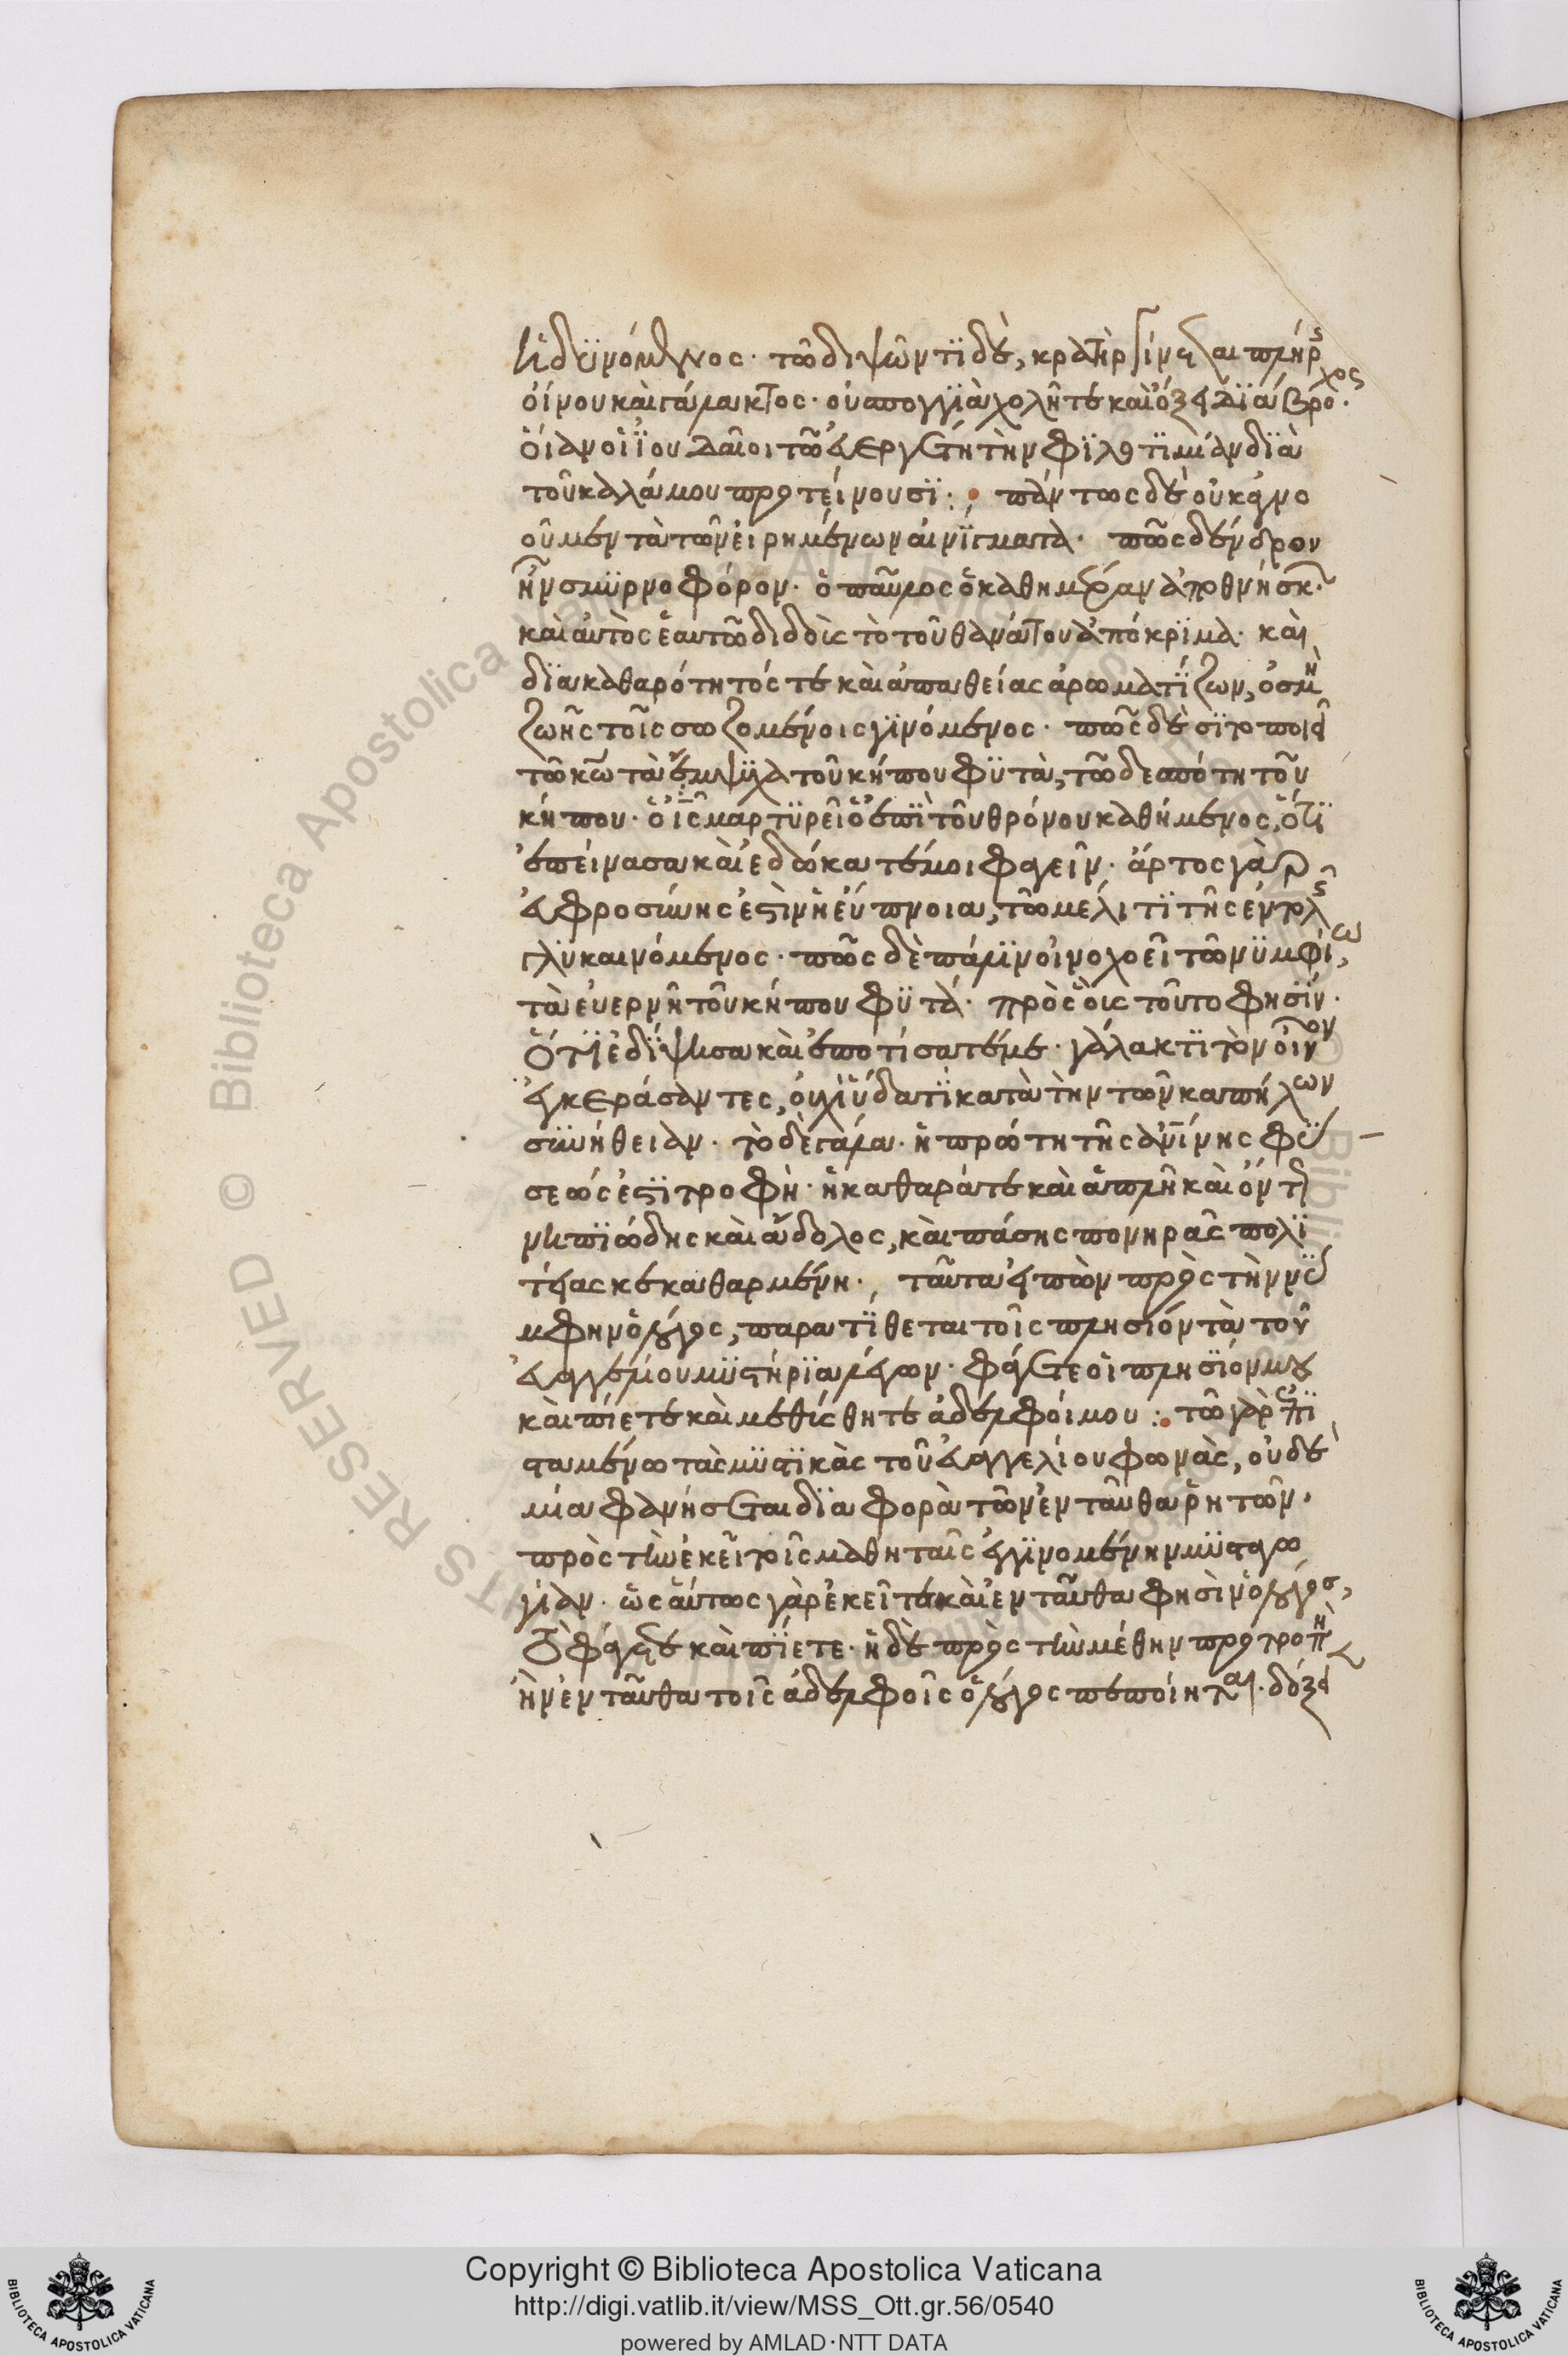 ἡδυνόμενος· τῶ διψῶντι δὲ, κρατὴρ γίνεται πλήρης
οἴνου καὶ γάλακτος· οὐ σπογγιὰ χολῆς τε καὶ ὄξει διάβροχος·
οἵαν οἱ ἰουδαῖοι τῶ εὐεργέτη τὴν φιλοτιμίαν διὰ
τοῦ καλάμου προτείνουσι: πάντως δὲ οὐκ ἀγνο
οῦμεν τὰ τῶν εἰρημένων αἰνίγματα· πῶς δένδρον
ἦν σμυρνοφόρον· ὁ παῦλος ὁ καθημέραν ἀποθνήσκων·
καὶ αὐτὸς ἑαυτῶ διδοὺς τὸ τοῦ θανάτου ἀπόκριμα· καὶ
δια καθαρότητός τε καὶ ἀπαθείας ἀρωματίζων, ὀσμὴ
ζωῆς τοῖς σωζομένοις γινόμενος· πῶς δὲ σιτοποιεῖ
τῶ κῶ τὰ ἔμψυχα τοῦ κήπου φυτὰ, τῶ δεσπότη τοῦ
κήπου· οἷς μαρτυρεῖ ὁ ἐπὶ τοῦ θρόνου καθήμενος, ὅτι
ἐπείνασα καὶ ἐδώκατέ μοι φαγεῖν· ἄρτος γὰρ
εὐφροσύνης ἐστὶν ἡ εὔπνοια, τῶ μέλιτι τῆς ἐντολῆς
γλυκαινόμενος· πῶς δὲ πάλιν οἰνοχοεῖ τῶ νυμφίω,
τὰ εὐερνῆ τοῦ κήπου φυτά· πρὸς οἷς τοῦτο φησὶν·
Ὅτι ἐδίψησα καὶ ἐποτίσατέ με· γάλακτι τὸν οἶνον
ἐγκεράσαντες, οὐχὶ ὕδατι κατὰ τὴν τῶν καπήλων
συνήθειαν· τὸ δὲ γάλα· ἡ πρώτη τῆς ἀνίνης φύ
σεώς ἐστι τροφὴ· ἡ καθαρά τε καὶ ἁπλῆ καὶ ὄντως
νηπιώδης καὶ ἄδολος, καὶ πάσης πονηρᾶς πολι
τείας κεκαθαρμένη· ταῦτα εἰπὼν πρὸς τὴν νύ
μφην ὁ λόγος, παρατίθεται τοῖς πλησίον τὰ τοῦ
εὐαγγελίου μυστήρια λέγων· φάγετε οἱ πλησίον μου
καὶ πίετε καὶ μεθύσθητε ἀδελφοί μου: τῶ γὰρ ἐπι
σταμένω τὰς μυστικὰς τοῦ εὐαγγελίου φωνὰς, οὐδε
μία φανήσεται διαφορὰ τῶν ἐνταῦθα ῥητῶν·
πρὸς τὴν ἐκεῖ τοῖς μαθηταῖς ἐγγινομένην μυσταγω
γίαν· ὡσαύτως γὰρ ἐκεῖ τε καὶ ἐνταῦθα φησὶν ὁ λόγος,
Τὸ φάγετε καὶ πίετε· ἡ δὲ πρὸς τὴν μέθην προτροπὴ
ἣν ἐνταῦθα τοῖς ἀδελφοῖς ὁ λόγος πεποίηται· δόξει
Copyright © Biblioteca Apostolica Vaticana
http://digi.vatlib.it/view/MSS_Ott.gr.56/0540
powered by AMLAD·NTT DATA